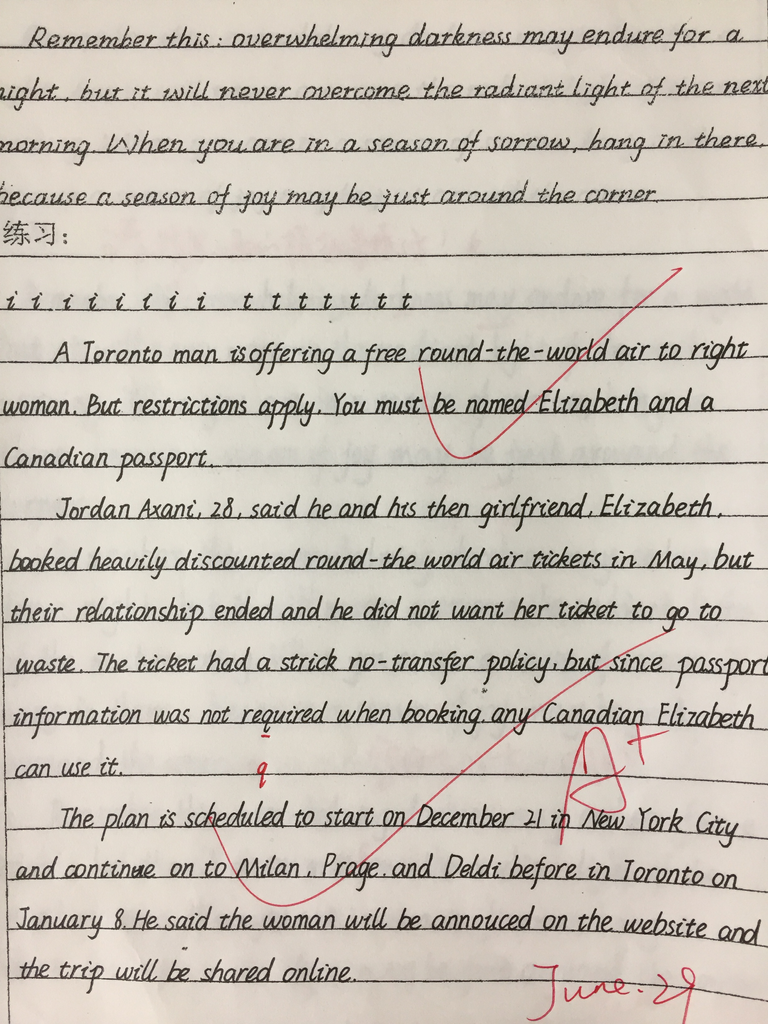 Remember this: overwhelming darkness may endure for a
night, but it will never overcome the radiant light of the next
morning. When you are in a season of sorrow, hang in there,
because a season of joy may be just around the corner.
练习:
i i i i i i i i t t t t t t t
A Toronto man is offering a free round-the-world air to right
woman. But restrictions apply. You must be named Elizabeth and a
Canadian passport.
Jordan Axani, 28, said he and his then girlfriend, Elizabeth,
booked heavily discounted round-the world air tickets in May, but
their relationship ended and he did not want her ticket to go to
waste. The ticket had a strick no-transfer policy, but since passport
information was not required when booking, any Canadian Elizabeth
can use it.
q
A+
The plan is scheduled to start on December 21 in New York City
and continue on to Milan, Prage and Deldi before in Toronto on
January 8. He said the woman will be annouced on the website and
the trip will be shared online.
June. 29